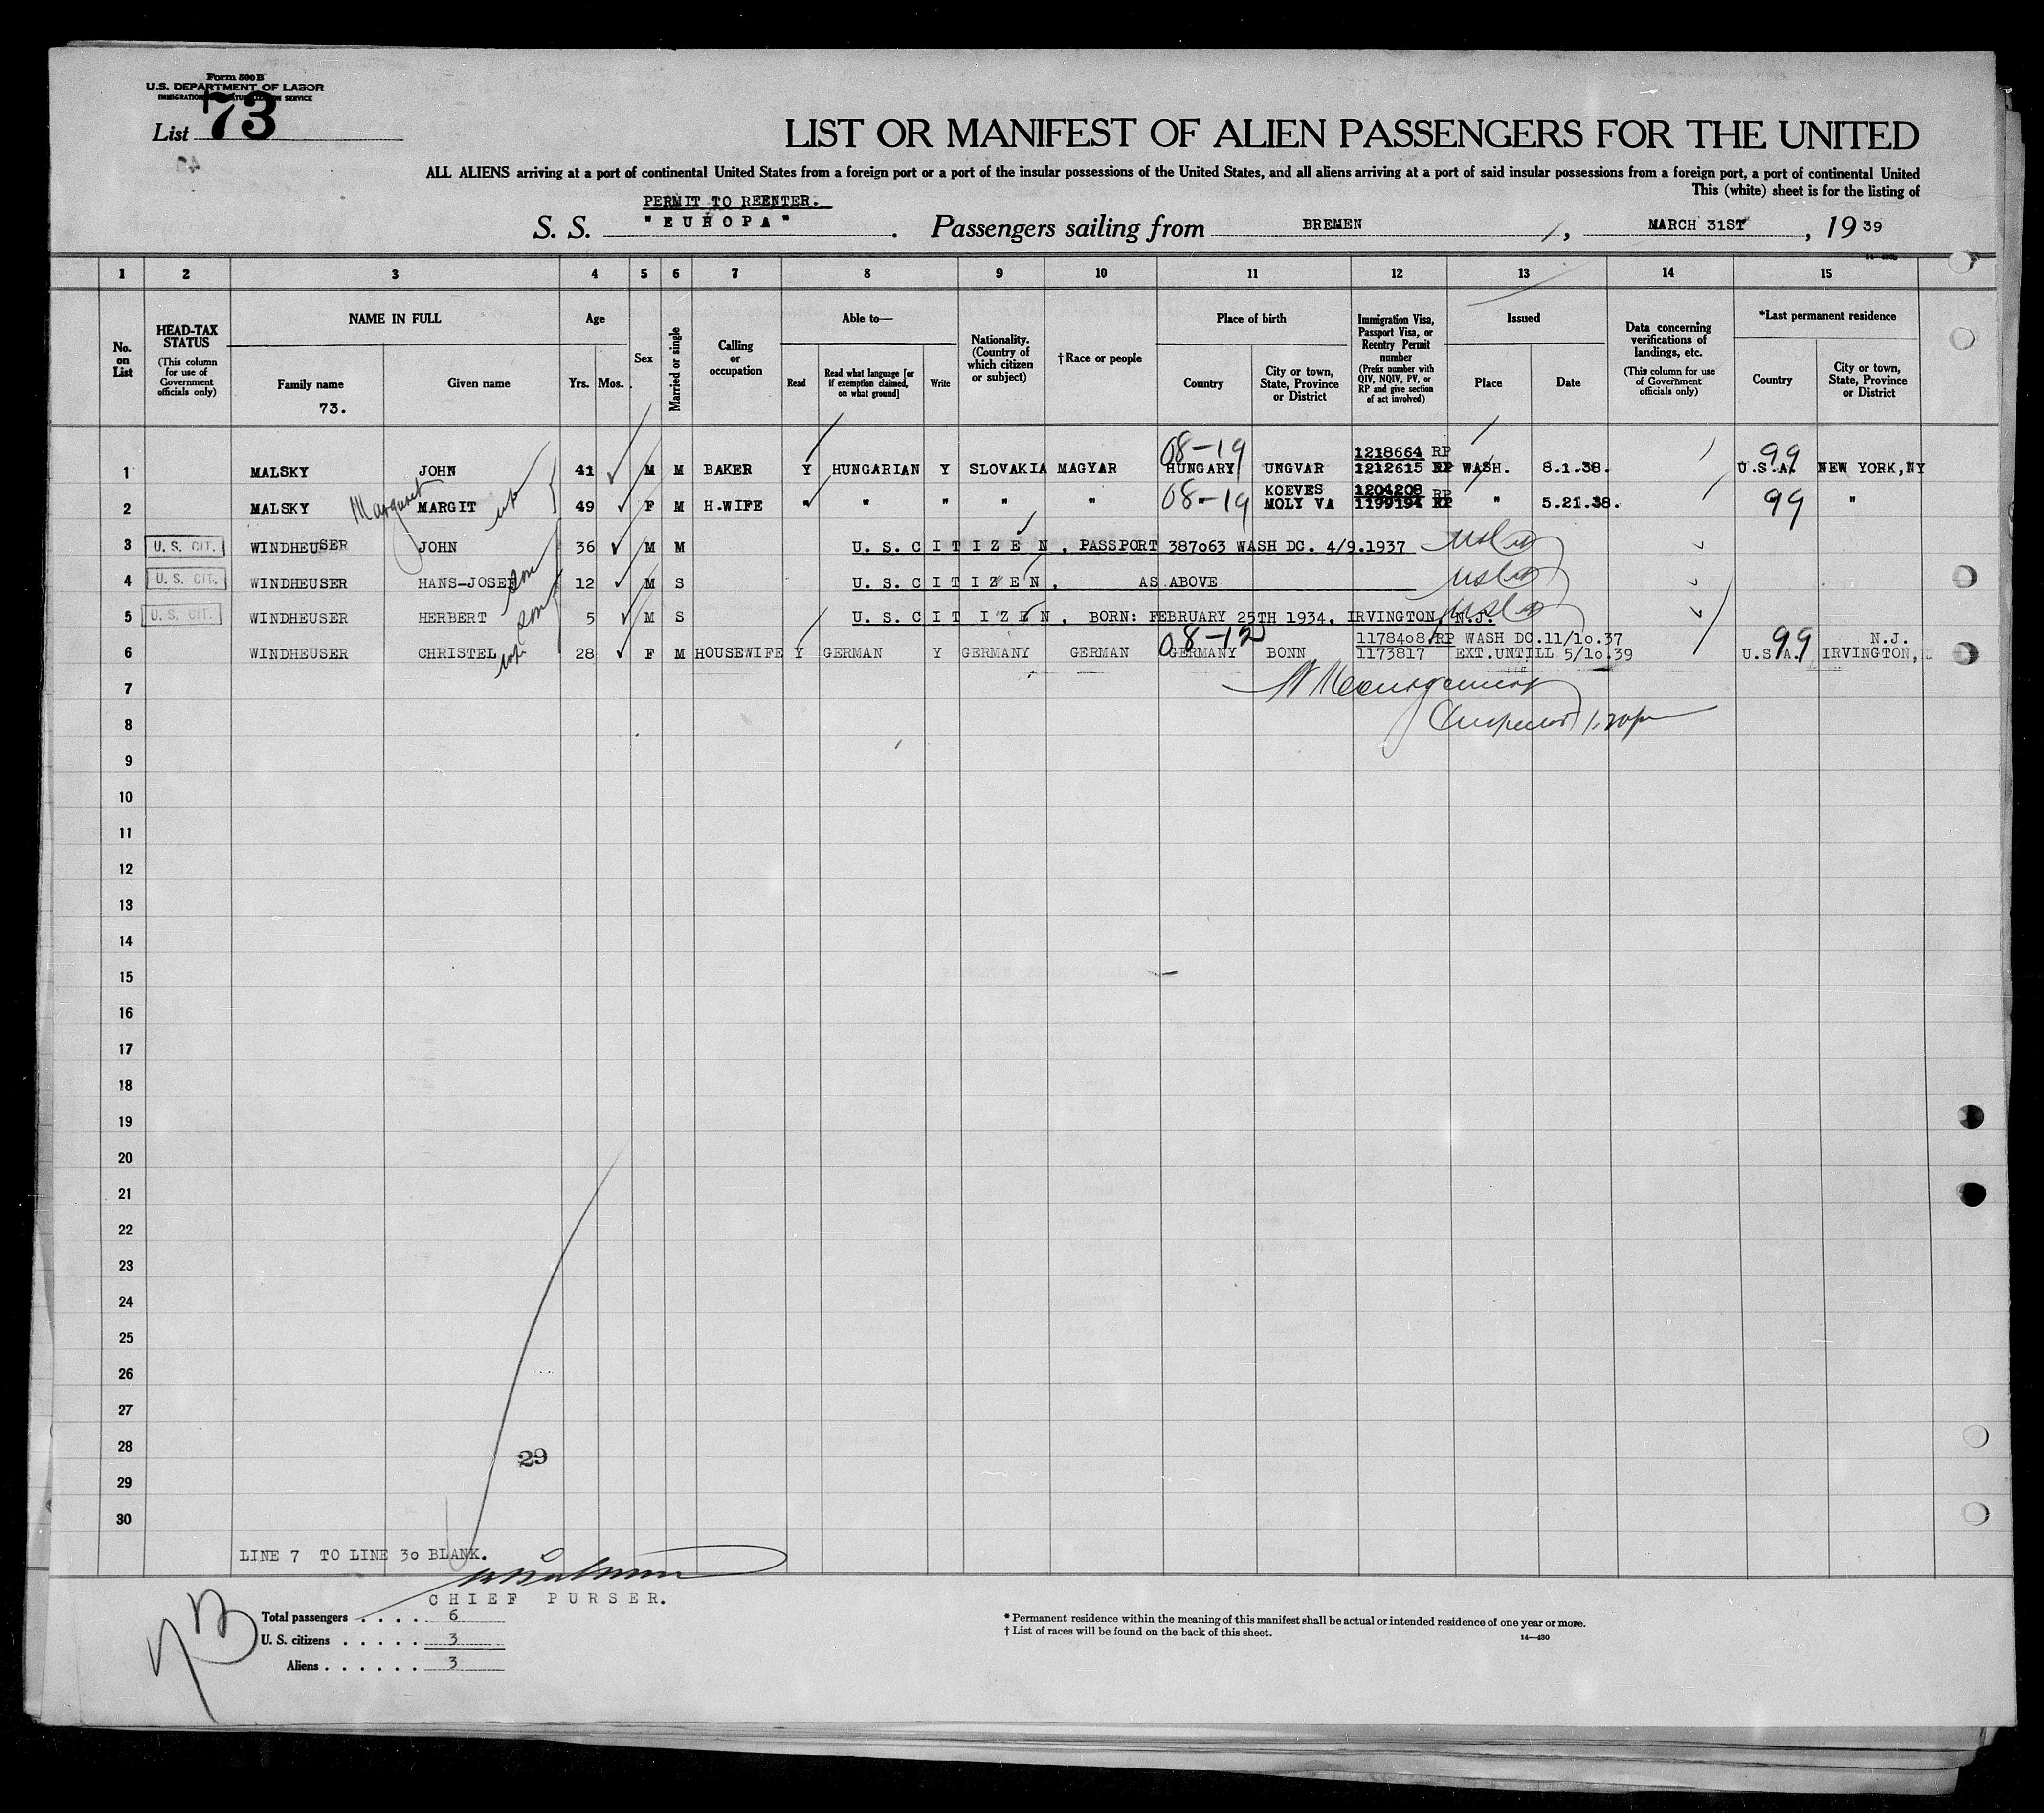 Form 500 B
U.S. DEPARTMENT OF LABOR
IMMIGRATION SERVICE
List 73
LIST OR MANIFEST OF ALIEN PASSENGERS FOR THE UNITED
ALL ALIENS arriving at a port of continental United States from a foreign port or a port of the insular possessions of the United States, and all aliens arriving at a port of said insular possessions from a foreign port, a port of continental United
This (white) sheet is for the listing of
PERMIT TO REENTER.
S. S. "EUROPA". Passengers sailing from BREMEN, MARCH 31ST, 19 39
1 2 3 4 5 6 7 8 9 10 11 12 13 14 15
No. on List
HEAD-TAX STATUS
(This column for use of Government officials only)
NAME IN FULL
Family name
Given name
73.
Age
Yrs. Mos.
Sex
Married or single
Calling or occupation
Able to—
Read
Read what language [or if exemption claimed, on what ground]
Write
Nationality. (Country of which citizen or subject)
†Race or people
Place of birth
Country
City or town, State, Province or District
Immigration Visa, Passport Visa, or Reentry Permit number
(Prefix number with QIV, NQIV, PV, or RP and give section of act involved)
Issued
Place
Date
Data concerning verifications of landings, etc.
(This column for use of Government officials only)
*Last permanent residence
Country
City or town, State, Province or District
08-19 1218664 RP 99
1 MALSKY JOHN 41 M M BAKER Y HUNGARIAN Y SLOVAKIA MAGYAR HUNGARY UNGVAR 1212615 RP WASH. 8.1.38. U.S.A. NEW YORK,NY
Margaret wf KOEVES 1204208 RP
2 MALSKY MARGIT 49 F M H.WIFE " " " " " 08-19 " MOLY VA 1199194 RP " 5.21.38. 99 " "
3 U. S. CIT. WINDHEUSER JOHN 36 M M U. S. C I T I Z E N , PASSPORT 387063 WASH DC. 4/9.1937
4 U. S. CIT. WINDHEUSER HANS-JOSEF son 12 M S U. S. C I T I Z E N , AS ABOVE
5 U. S. CIT. WINDHEUSER HERBERT son 5 M S U. S. C I T I Z E N , BORN: FEBRUARY 25TH 1934, IRVINGTON, N.J.
08-12 1178408 RP WASH DC.11/10.37 99 N.J.
6 WINDHEUSER CHRISTEL 28 F M HOUSEWIFE Y GERMAN Y GERMANY GERMAN GERMANY BONN 1173817 EXT.UNTILL 5/10.39 U.S.A. IRVINGTON,
7
8
9
10
11
12
13
14
15
16
17
18
19
20
21
22
23
24
25
26
27
28
29
29
30
LINE 7 TO LINE 30 BLANK.
CHIEF PURSER.
Total passengers . . . . 6
U. S. citizens . . . . . 3
Aliens . . . . . . 3
* Permanent residence within the meaning of this manifest shall be actual or intended residence of one year or more.
† List of races will be found on the back of this sheet.
14—430